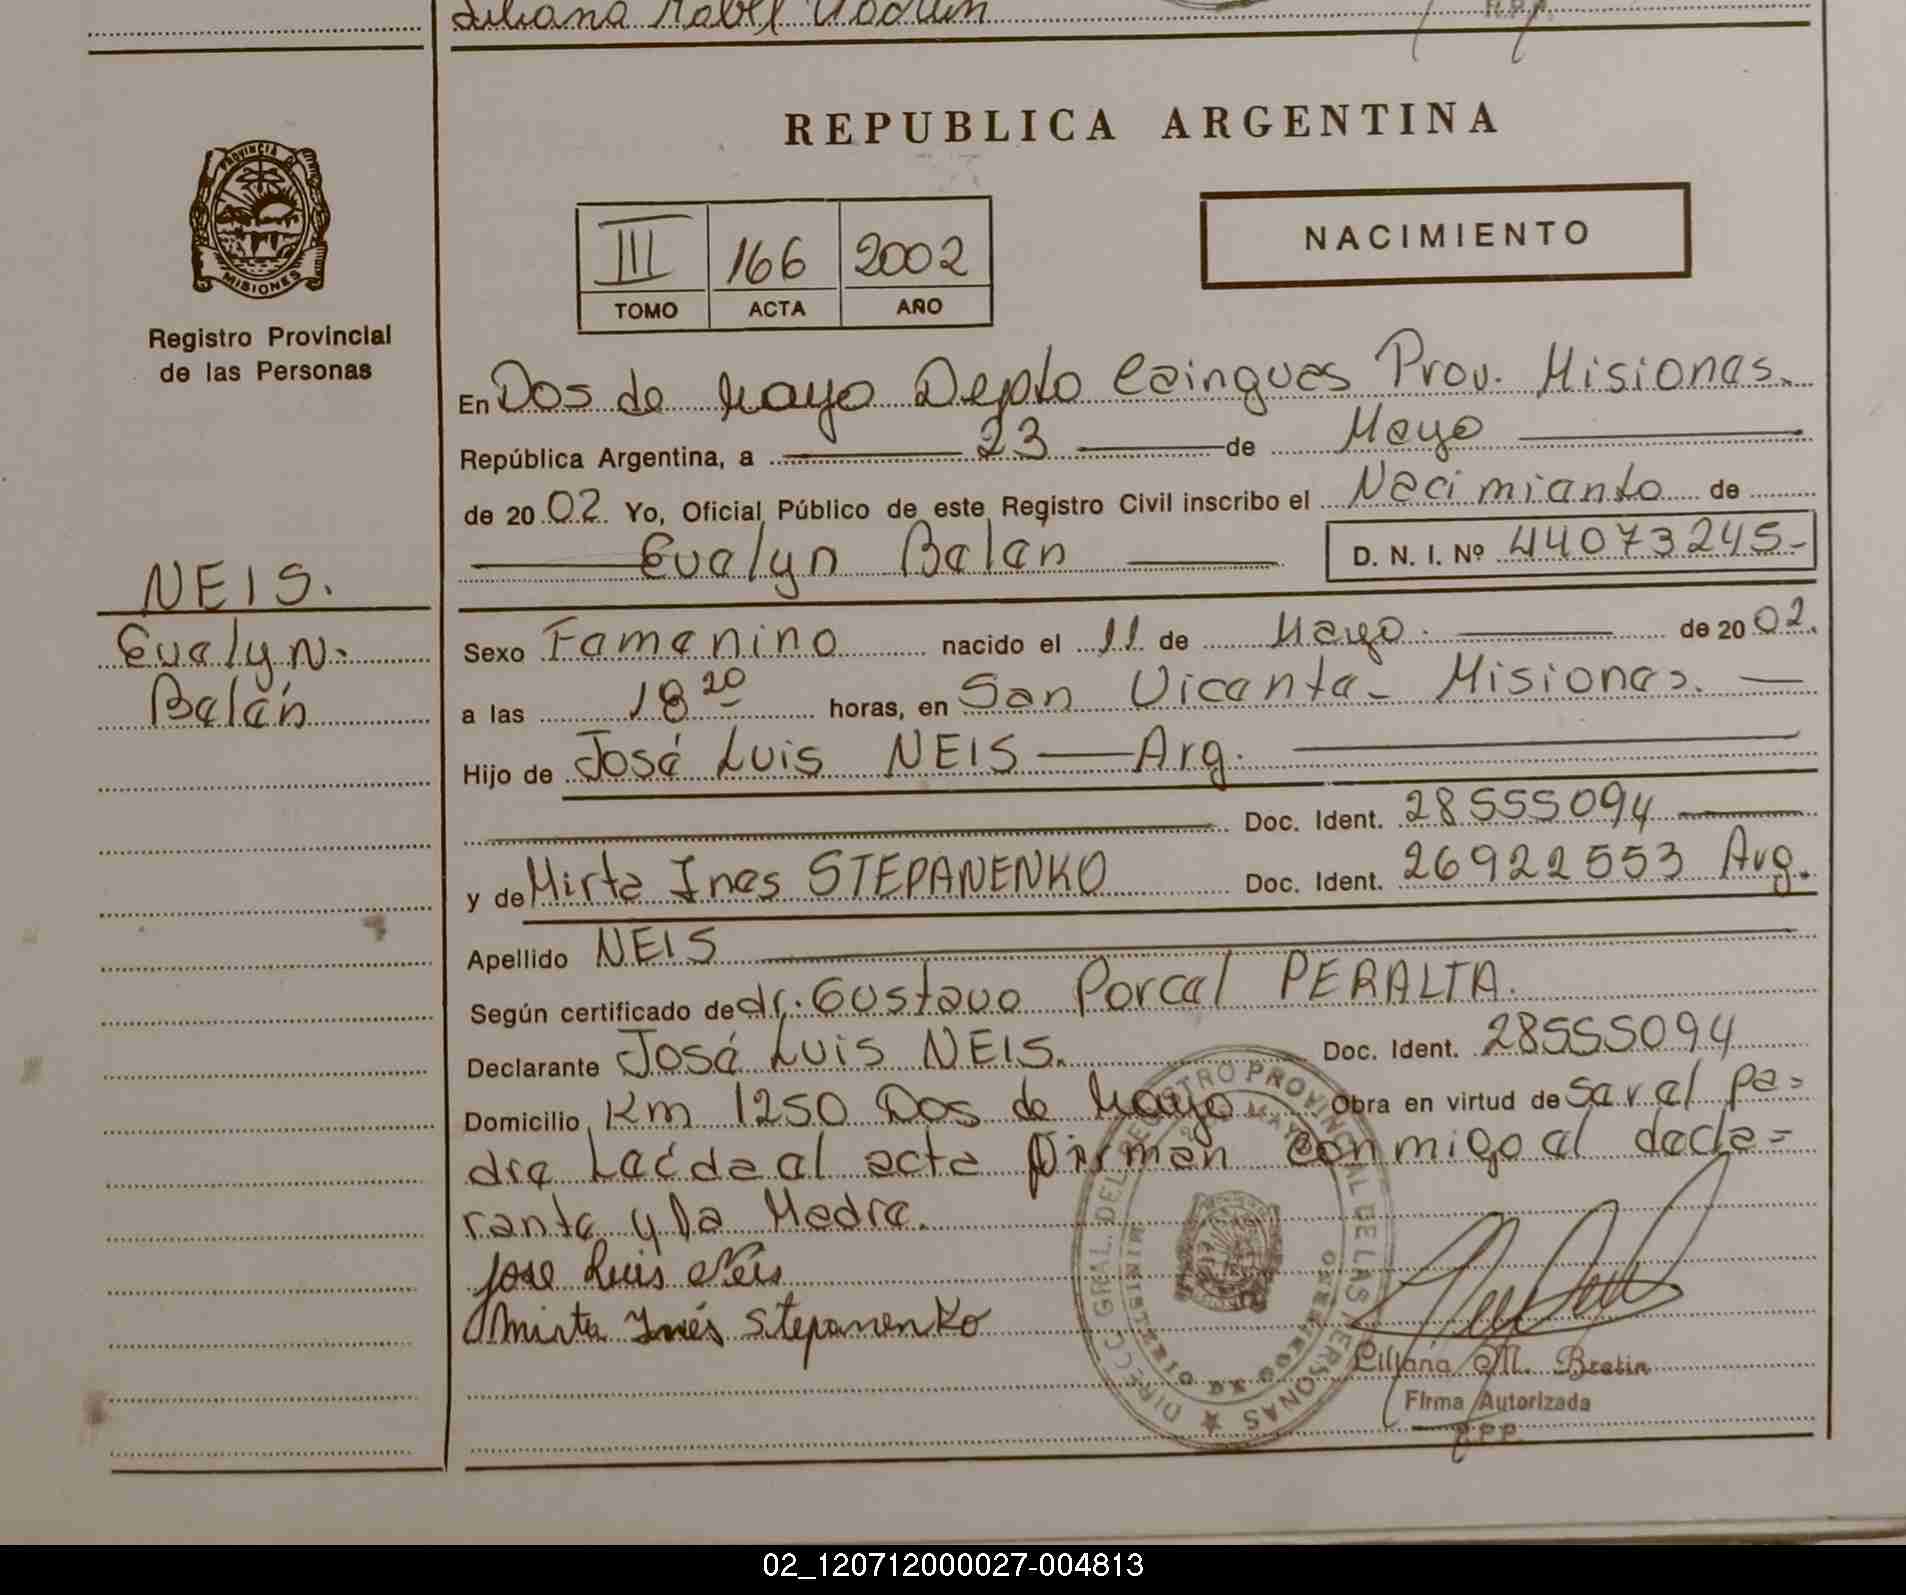 Liliana Mabel
REPUBLICA ARGENTINA
PROVINCIA DE
MISIONES
Registro Provincial
de las Personas
III 166 2002
TOMO ACTA AÑO
NACIMIENTO
En Dos de Mayo Depto Cainguas Prov. Misiones.
República Argentina, a 23 de Mayo
de 2002 Yo, Oficial Público de este Registro Civil inscribo el Nacimiento de
Evelyn Belen D. N. I. Nº 44073245-
NEIS.
Evelyn.
Belén
Sexo Femenino nacido el 11 de Mayo. de 2002.
a las 18 20 horas, en San Vicente - Misiones.
Hijo de José Luis NEIS — Arg.
Doc. Ident. 28555094
y de Mirta Ines STEPANENKO Doc. Ident. 26922553 Arg.
Apellido NEIS
Según certificado de dr. Gustavo Porcel PERALTA.
Declarante José Luis NEIS. Doc. Ident. 28555094
Domicilio Km 1250 Dos de Mayo. Obra en virtud de ser el pa=
dre Leída el acta firman conmigo el decla=
rante y la Madre.
Jose Luis Neis
Mirta Inés Stepanenko
DIRECC. GRAL. DEL REGISTRO PROVINCIAL DE LAS PERSONAS
MINISTERIO DE GOBIERNO
Liliana M. Bretin
Firma Autorizada
R.P.P.
02_120712000027-004813